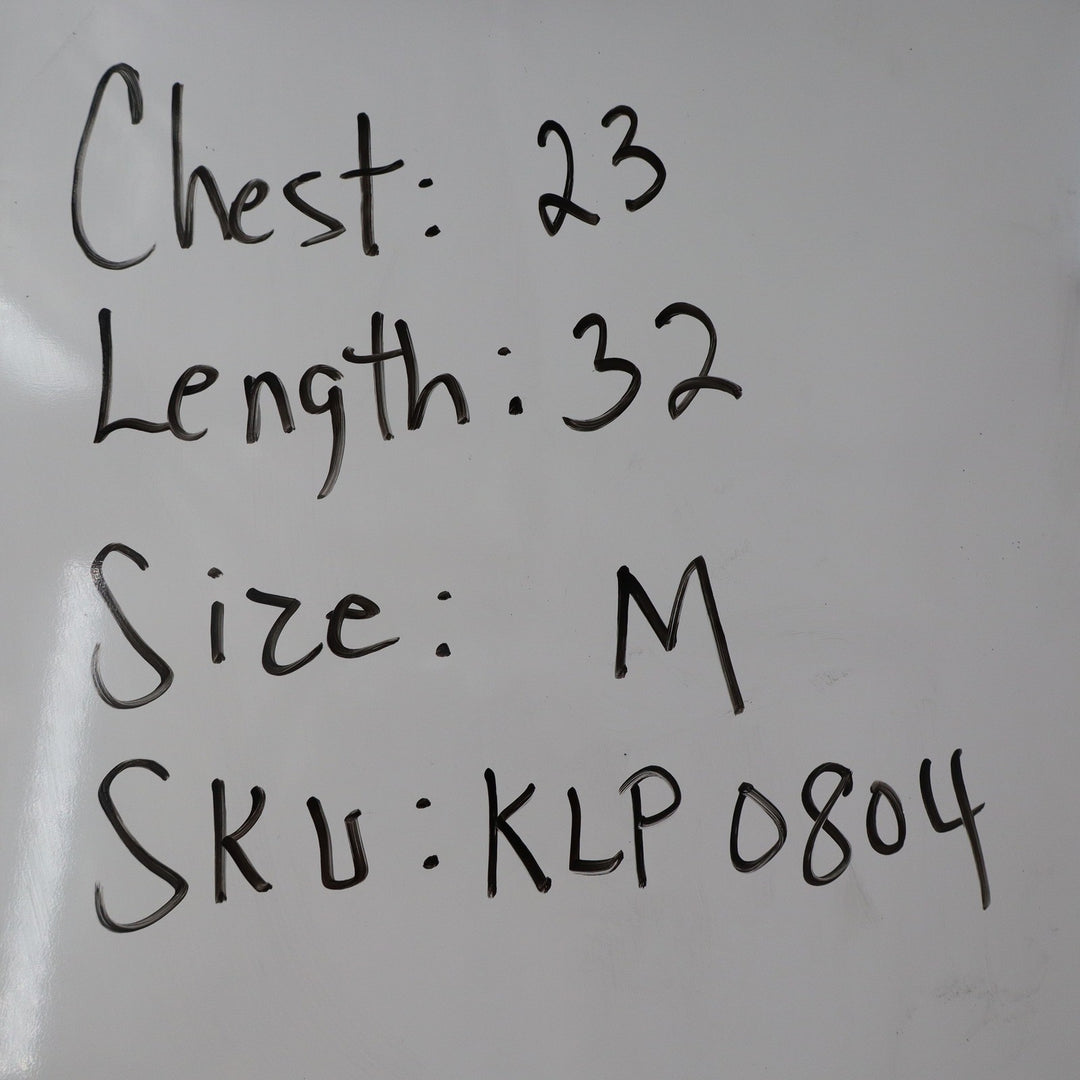 Chest: 23
Length: 32
Size: M
SKU: KLP0804